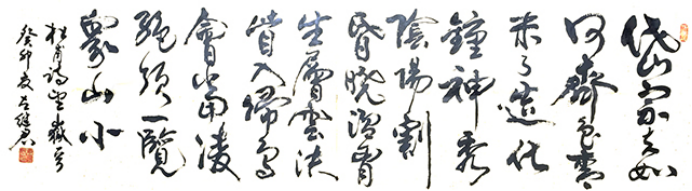 岱宗夫如
何齊魯青
未了造化
鍾神秀
陰陽割
昏曉盪胸
生層雲決
眥入歸鳥
會當凌
絕頂一覽
眾山小
杜甫詩望嶽
癸卯夏